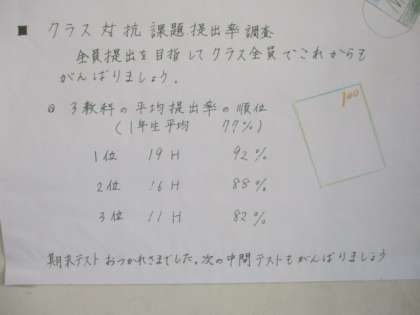 ■ クラス対抗課題提出率調査
全員提出を目指してクラス全員でこれからも
がんばりましょう.
◎ 3教科の平均提出率の順位
(1年生平均 77%)
1位 19H 92%
2位 16H 88%
3位 11H 82%
100
期末テストおつかれさまでした。次の中間テストもがんばりましょう